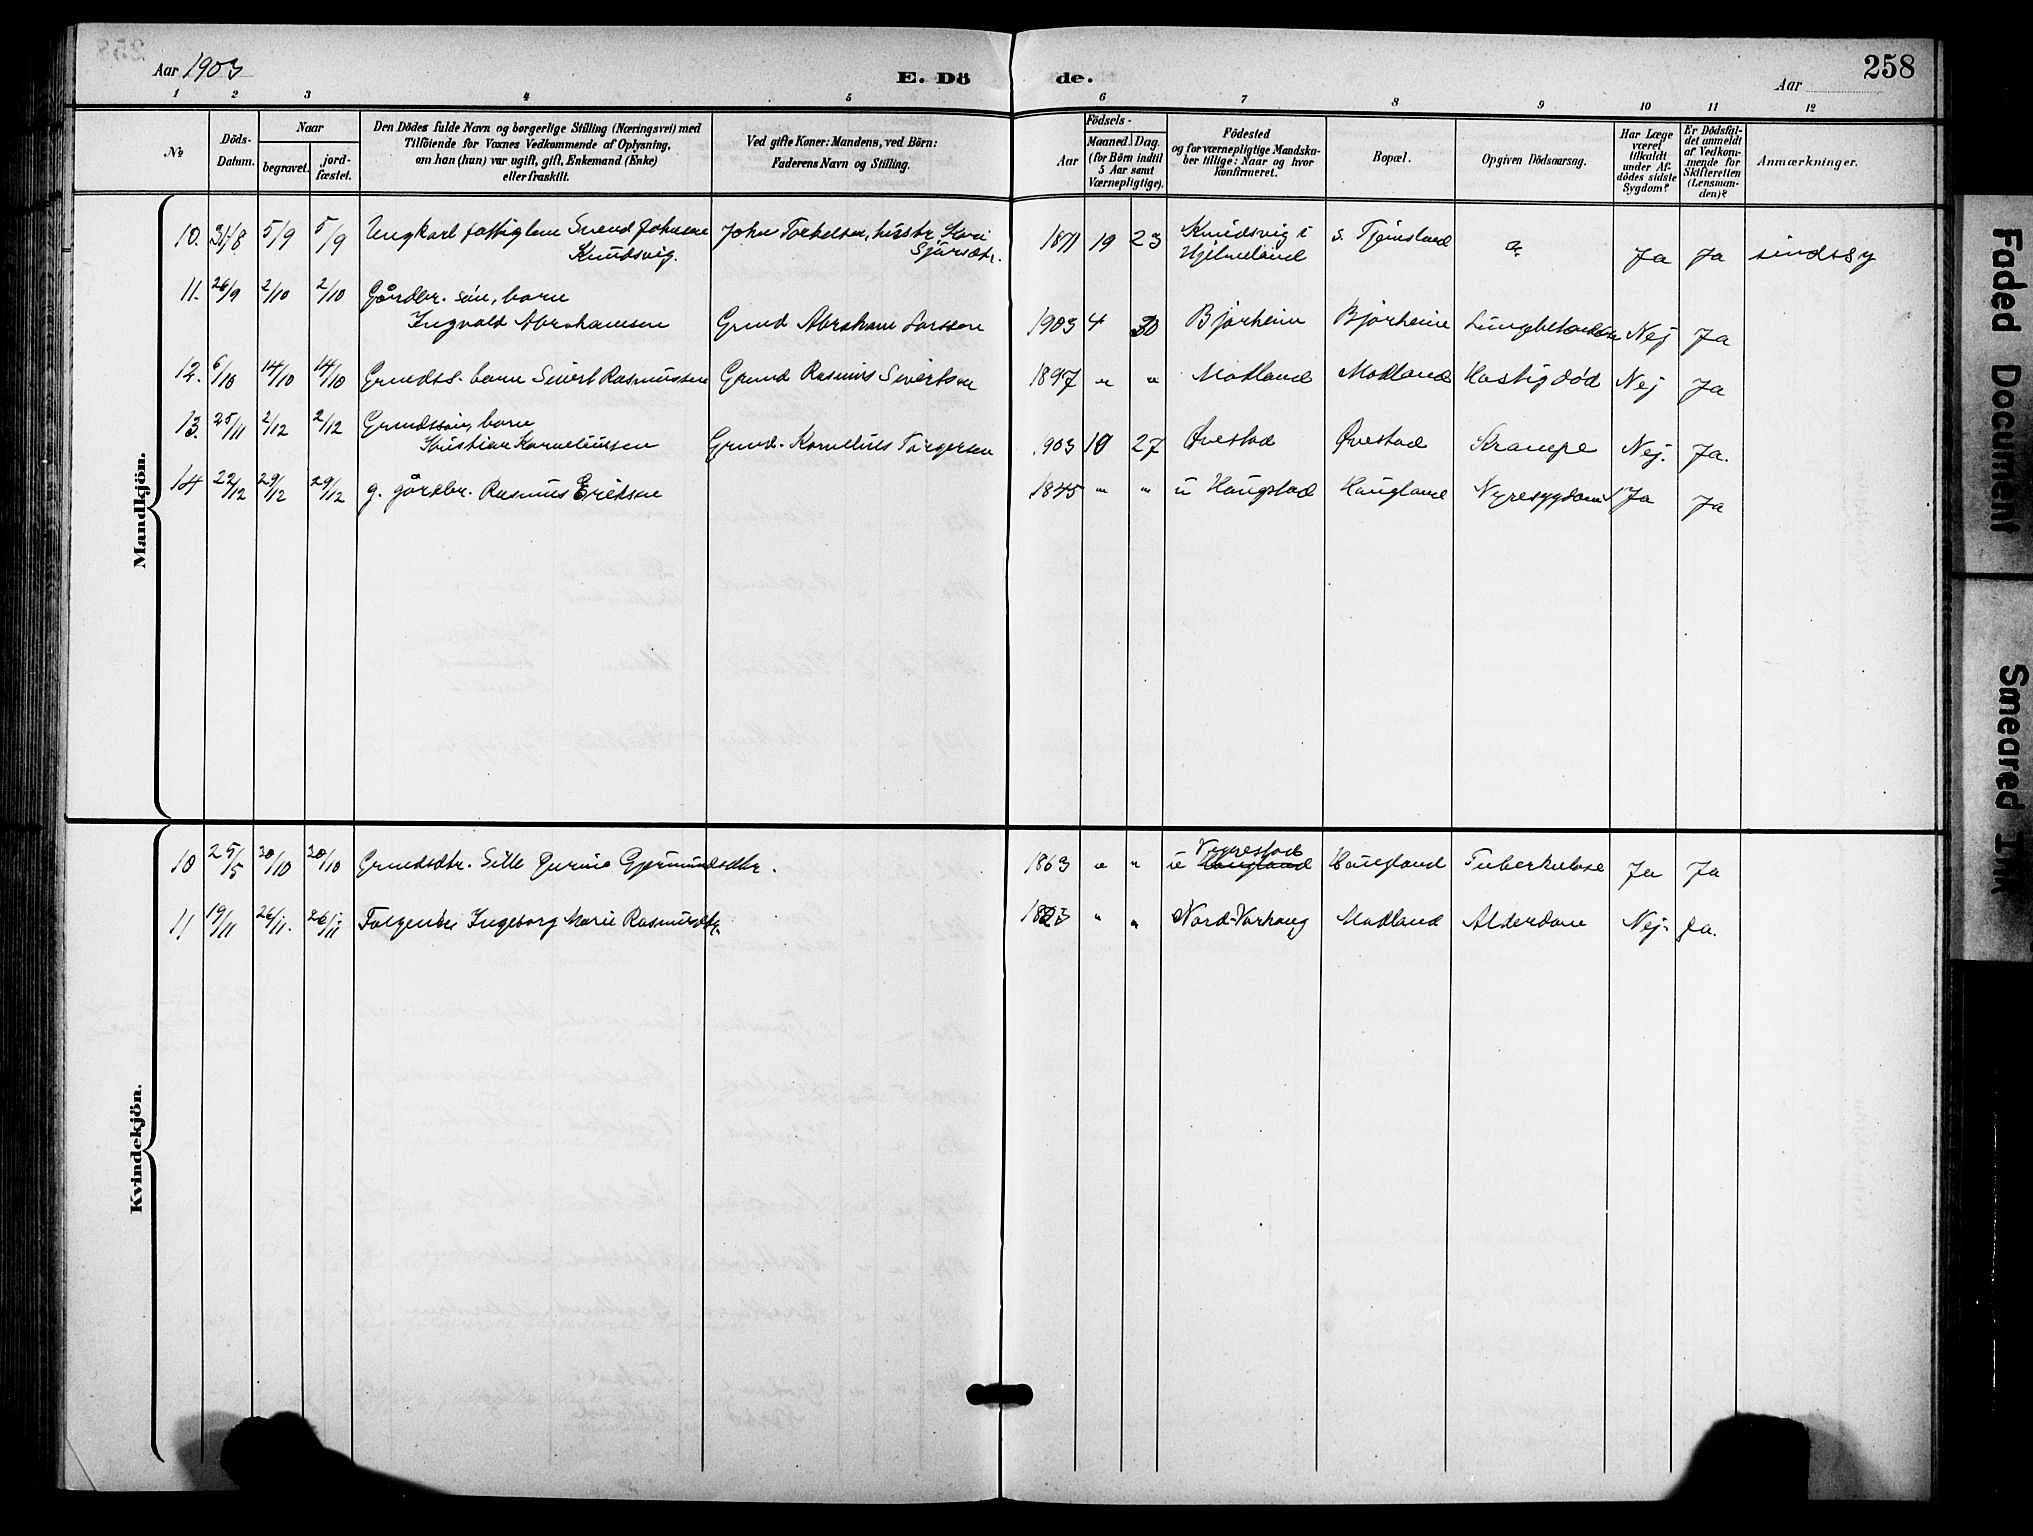 Aar 1903
E. Dö de.
Aar
258
1 2 3 4 5 6 7 8 9 10 11 12
No
Döds-Datum.
Naar
begravet.
jord-fæstet.
Den Dödes fulde Navn og borgerlige Stilling (Næringsvei) med
Tilföiende for Voxnes Vedkommende af Oplysning,
om han (hun) var ugift, gift, Enkemand (Enke)
eller fraskilt.
Ved gifte Koner: Mandens, ved Börn:
Faderens Navn og Stilling.
Födsels-
Aar
Maaned. Dag.
(for Börn indtil
5 Aar samt
Værnepligtige).
Födested
og for værnepligtige Mandska-
ber tillige: Naar og hvor
konfirmeret.
Bopæl.
Opgiven Dödsaarsag.
Har Læge
været
tilkaldt
under Af-
dödes sidste
Sygdom?
Er Dödsfal-
det anmeldt
af Vedkom-
mende for
Skifteretten
(Lensman-
den)?
Anmærkninger.
Mandkjön.
10. 31/8 5/9 5/9 Ungkarl fattiglem Svend Johnsen John Torkelsen, hustr. Kari 1871 19 23 Knudsvig i s. Tjemsland Ja Ja sindssyg
Knudsvig. Sjursdtr. Hjelmeland
11. 26/9 2/10 2/10 Gårdbr. søn, barn
Ingvald Abrahamsen Grmd Abraham Larssen 1903 4 30 Bjorheim Bjorheim Lungebetændelse Nej Ja
12. 6/10 14/10 14/10 Grmdss. barn Sivert Rasmussen Grmd Rasmus Sivertsen 1897 " " Motland Motland Hastig død Nej Ja
13. 25/11 2/12 2/12 Grmdssøn, barn
Kristian Korneliussen Grmd. Kornelius Torgersen 1903 10 27 Øvestad Øvestad Krampe Nej. Ja.
14 22/12 29/12 29/12 g. gårdbr. Rasmus Eriksen 1845 " " u Haugstad Haugland Nyresygdom Ja Ja
Kvindekjön.
10 25/5 30/10 30/10 Grmdsdtr. Sille Gurine Gjermundsdtr. 1863 " " u Haugland Haugland Tuberkulose Ja Ja
11 19/11 26/11. 26/11 Folgenke Ingeborg Marie Rasmusdtr. 1823 " " Nord-Varhaug Motland Alderdom Nej. Ja.
Faded Document
Smeared Ink